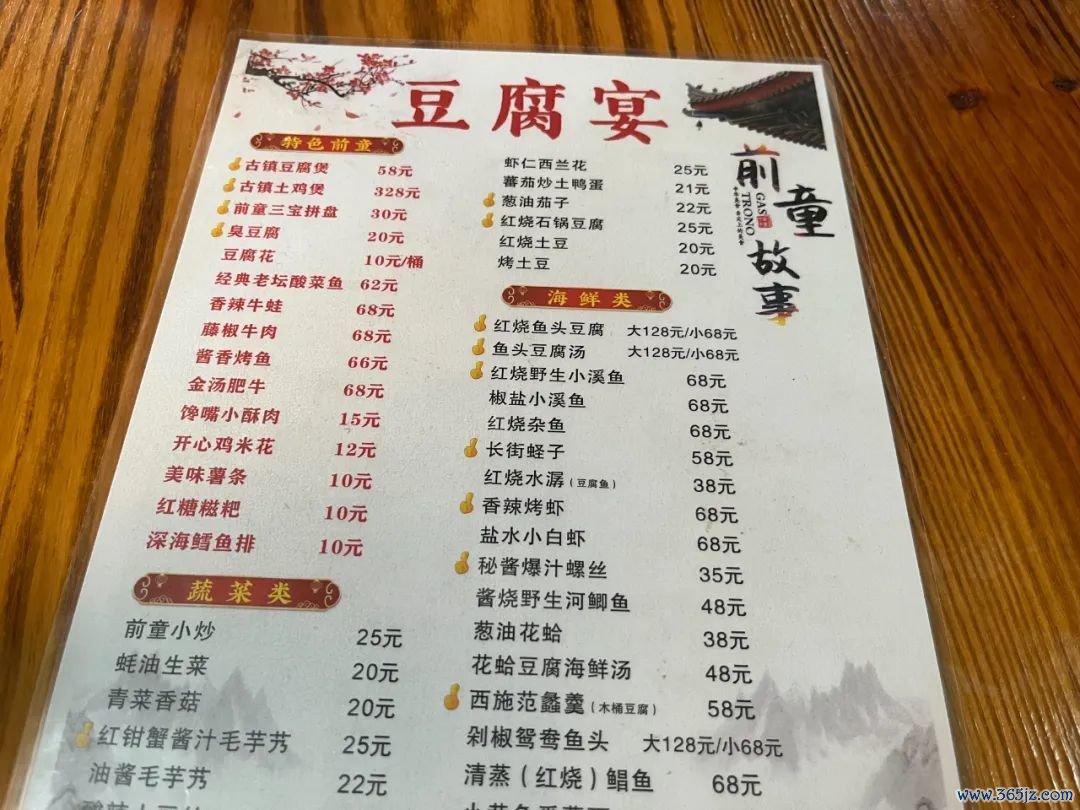 豆腐宴
前童故事
GAS
TRONO
特色前童
古镇豆腐煲 58元
古镇土鸡煲 328元
前童三宝拼盘 30元
臭豆腐 20元
豆腐花 10元/桶
经典老坛酸菜鱼 62元
香辣牛蛙 68元
藤椒牛肉 68元
酱香烤鱼 66元
金汤肥牛 68元
馋嘴小酥肉 15元
开心鸡米花 12元
美味薯条 10元
红糖糍粑 10元
深海鳕鱼排 10元
蔬菜类
前童小炒 25元
蚝油生菜 20元
青菜香菇 20元
红钳蟹酱汁毛芋艿 25元
油酱毛芋艿 22元
虾仁西兰花 25元
蕃茄炒土鸭蛋 21元
葱油茄子 22元
红烧石锅豆腐 25元
红烧土豆 20元
烤土豆 20元
海鲜类
红烧鱼头豆腐 大128元/小68元
鱼头豆腐汤 大128元/小68元
红烧野生小溪鱼 68元
椒盐小溪鱼 68元
红烧杂鱼 68元
长街蛏子 58元
红烧水潺(豆腐鱼) 38元
香辣烤虾 68元
盐水小白虾 68元
秘酱爆汁螺丝 35元
酱烧野生河鲫鱼 48元
葱油花蛤 38元
花蛤豆腐海鲜汤 48元
西施范蠡羹(木桶豆腐) 58元
剁椒鸳鸯鱼头 大128元/小68元
清蒸(红烧)鲳鱼 68元
www.365jz.com